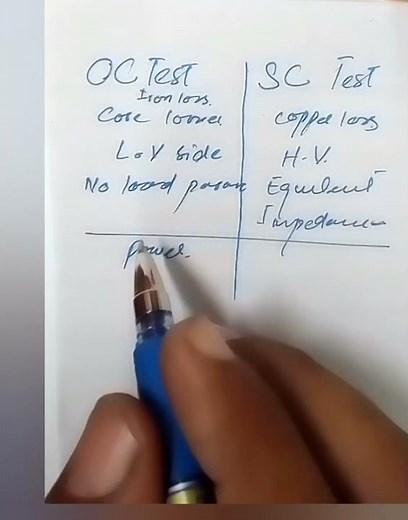 OC Test
Iron loss.
Core losses
L.V side
No load param
Power.
SC Test
Copper loss
H.V.
Equivlent
Impedance